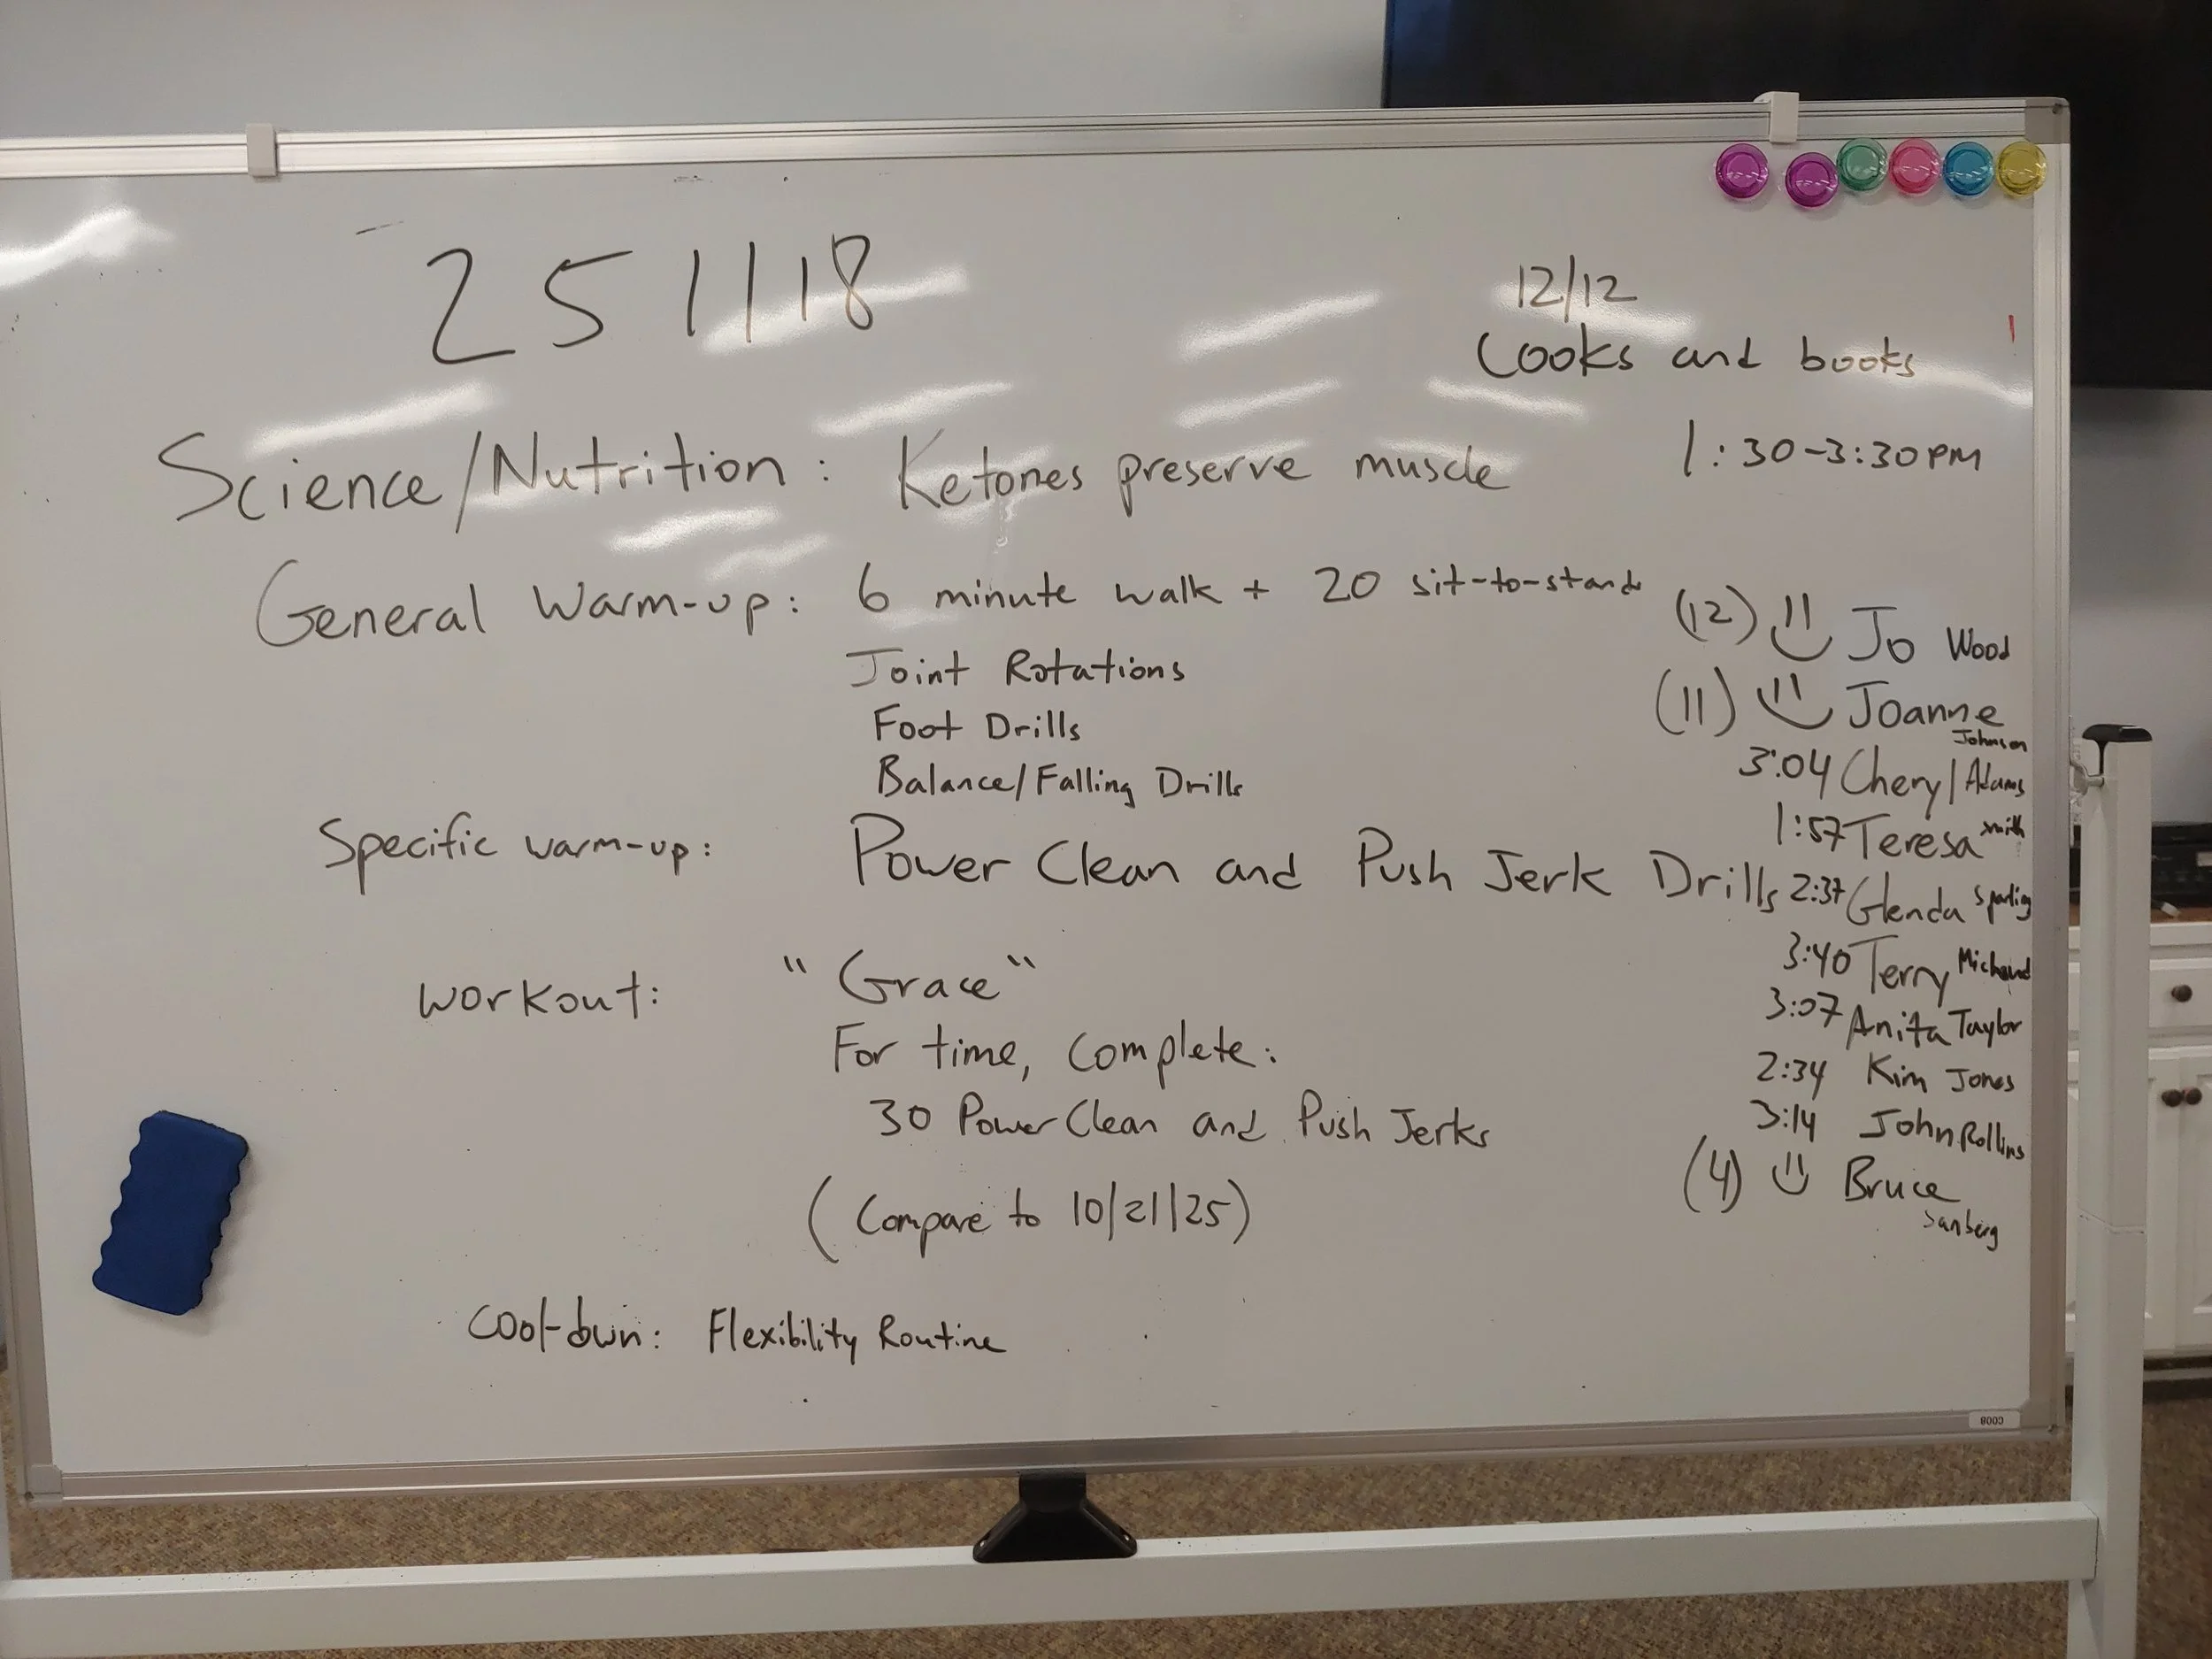 251118
12/12
Cooks and books
1:30-3:30PM
Science/Nutrition: Ketones preserve muscle
General Warm-up: 6 minute walk + 20 sit-to-stands
Joint Rotations
Foot Drills
Balance/Falling Drills
Specific warm-up: Power Clean and Push Jerk Drills
Workout: "Grace"
For time, complete:
30 Power Clean and Push Jerks
(Compare to 10/21/25)
Cool-down: Flexibility Routine
(12) Jo Wood
(11) Joanne Johnson
3:04 Cheryl Adams
1:57 Teresa Smith
2:37 Glenda
3:40 Terry
3:07 Anita Taylor
2:34 Kim Jones
3:14 John Rollins
(4) Bruce Sanberg